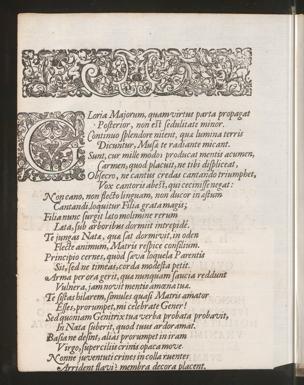 GLoria Majorum, quam virtus parta propagat
Posterior, non est sedulitate minor.
Continuo splendore nitent, qua lumina terris
Dicuntur, Musâ te radiante micant.
Sunt, cur mille modos producat mentis acumen,
Carmen, quod placuit, ne tibi displiceat,
Obsecro, ne cantus credas cantando triumphet,
Vox cantoris abest, qui cecinisse negat:
Non cano, non flecto linguam, non ducor in astum
Cantandi, loquitur Filia grata magis;
Filia nunc surgit lato molimine rerum
Lata, sub arboribus dormiit intrepidè.
Te jungas Nata, qua sat dormivit, in oden
Flecte animum, Matris respice consilium.
Principio cernes, quod sava loquela Parentis
Sit, sed ne timeas, corda modesta petit.
Arma per ora gerit, qua nunquam saucia reddunt
Vulnera, jam novit mentis amœna tua.
Te sistas hilarem, simules quasi Matris amator
Esses, prorumpet, mi celebrate Gener!
Sed quoniam Genitrix tua verba probata probavit,
In Nata suberit, quod tuus ardor amat.
Basia ne desint, alias prorumpet in iram
Virgo, supercilii crimis opaca move
Nonne juventuti crines in colla ruentes
Arrident flavi? membra decora placent.